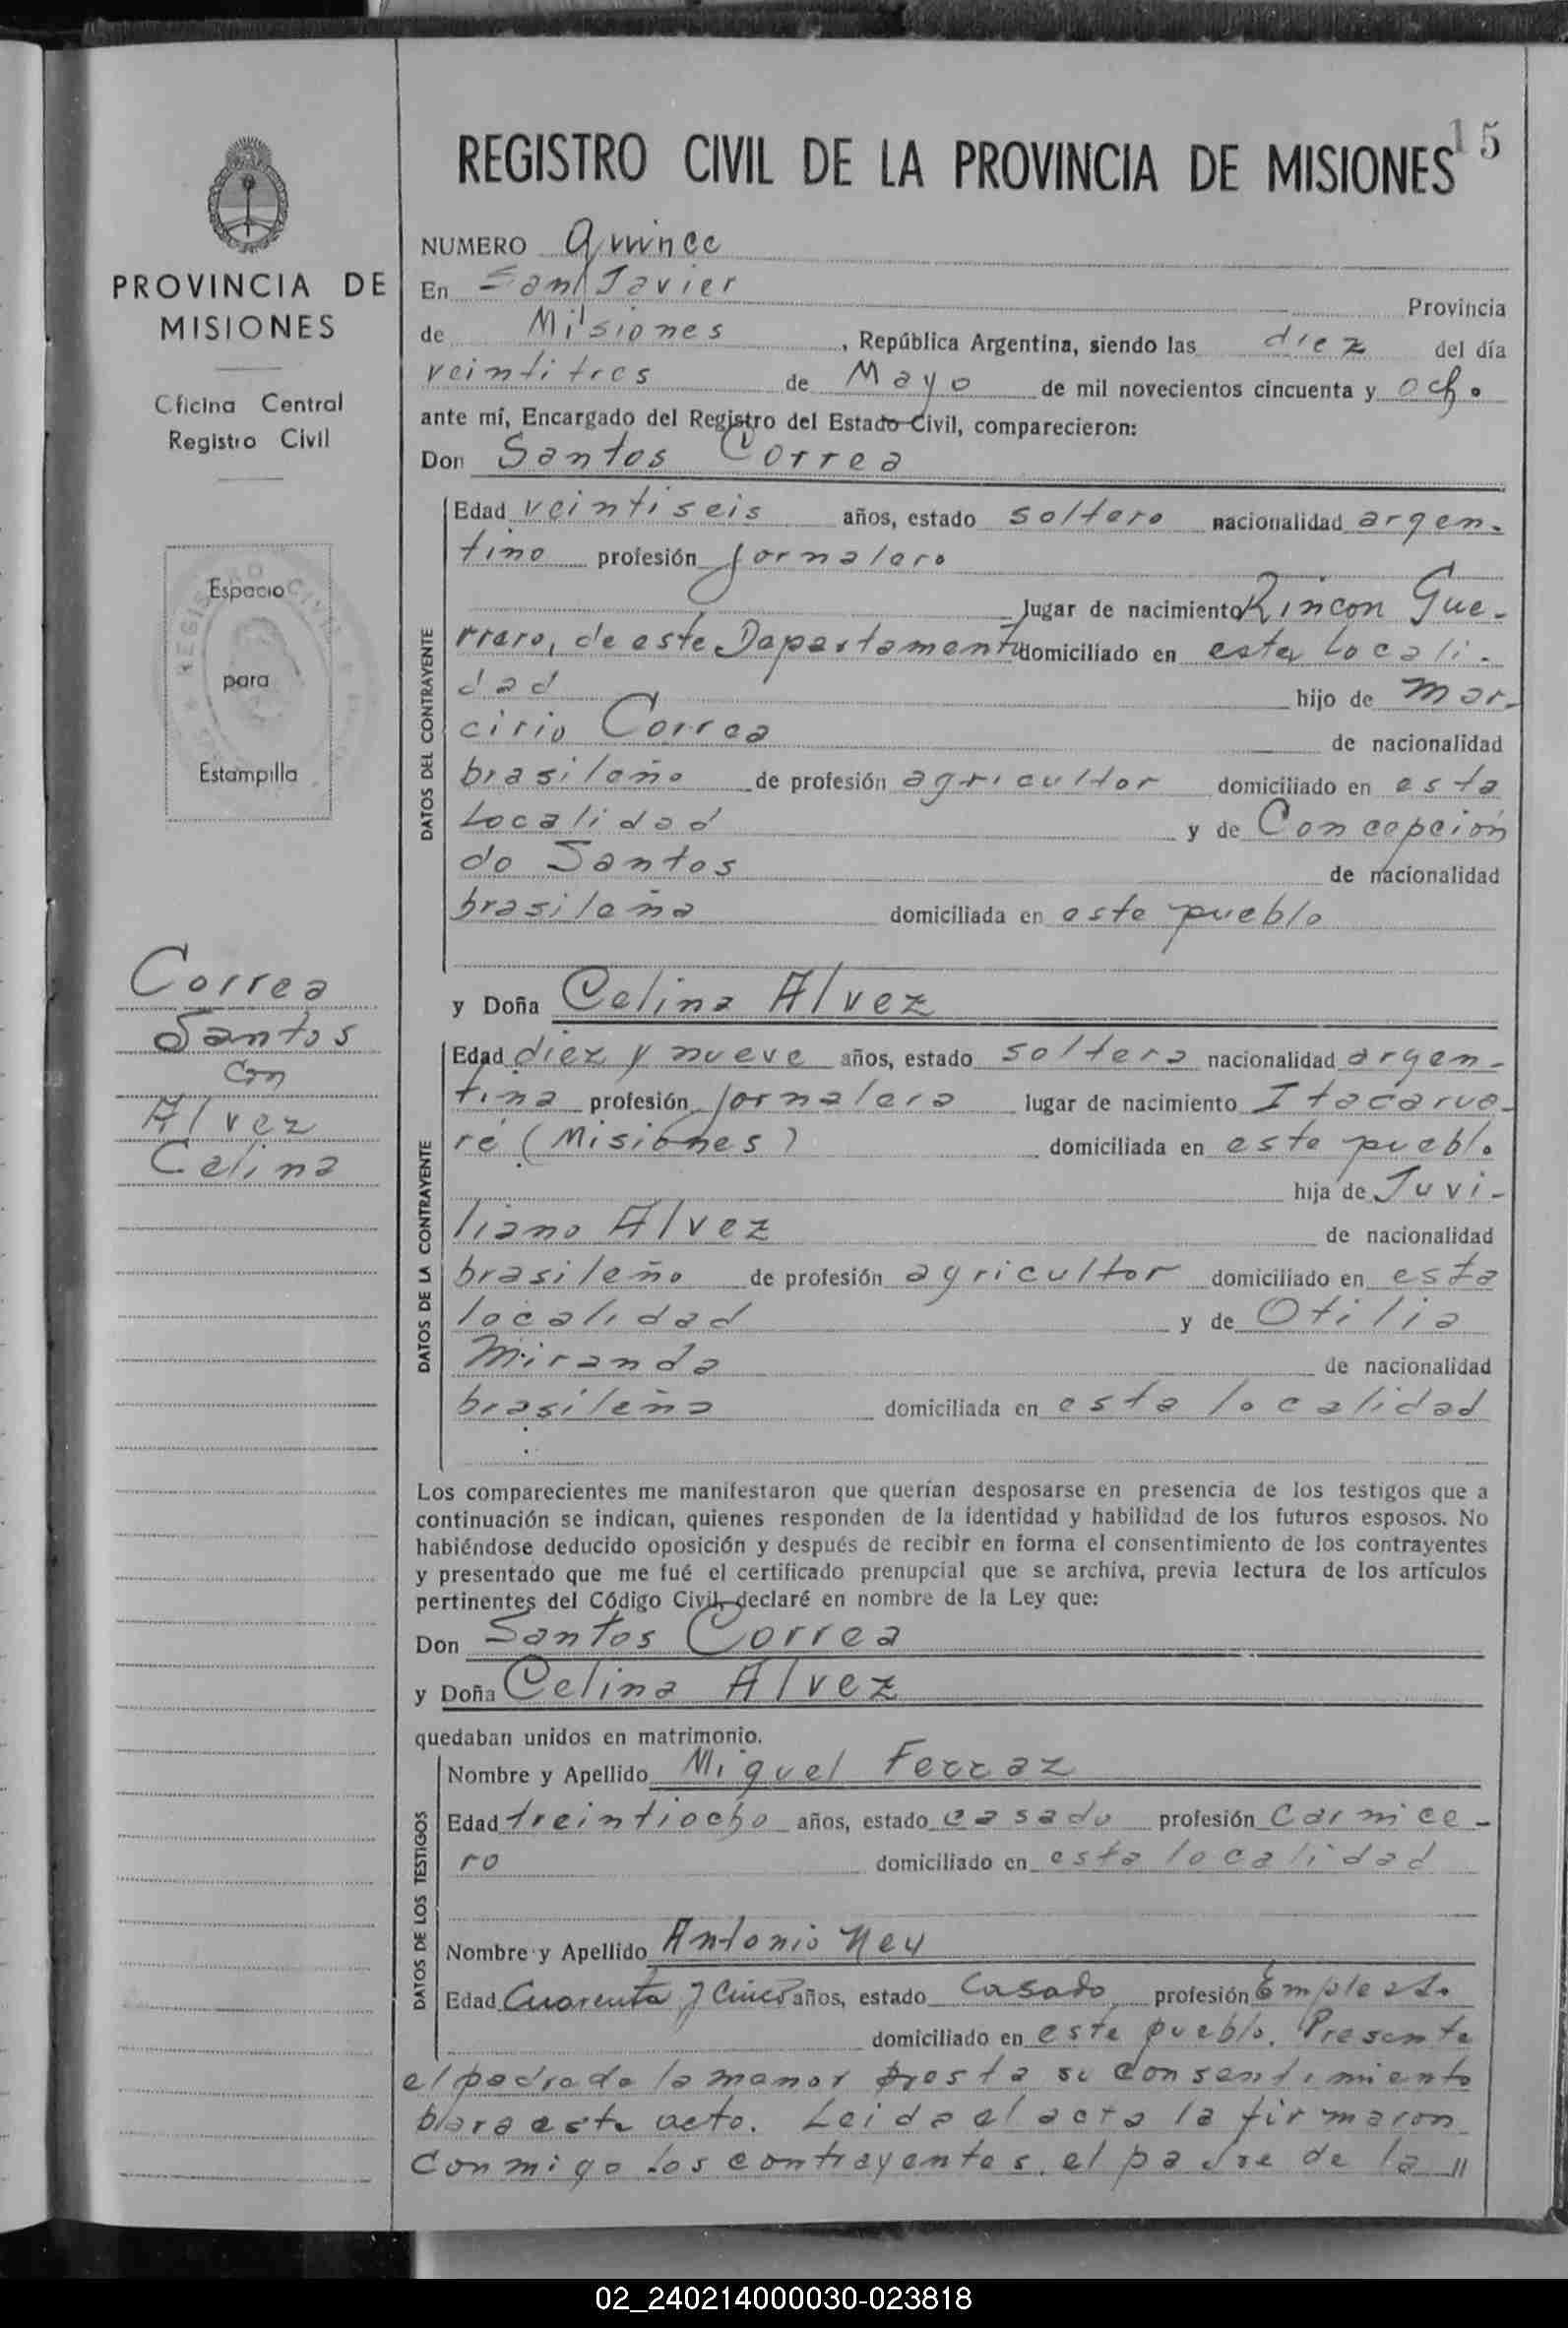 15
REGISTRO CIVIL DE LA PROVINCIA DE MISIONES
PROVINCIA DE
MISIONES
Oficina Central
Registro Civil
Espacio
para
Estampilla
Correa
Santos
con
Alvez
Celina
NUMERO Quince
En San Javier Provincia
de Misiones, República Argentina, siendo las diez del día
veintitres de Mayo de mil novecientos cincuenta y ocho
ante mí, Encargado del Registro del Estado Civil, comparecieron:
Don Santos Correa
DATOS DEL CONTRAYENTE
Edad veintiseis años, estado soltero nacionalidad argen-
tino profesión jornalero
lugar de nacimiento Rincon Gue-
rrero, de este Departamento domiciliado en esta locali-
dad hijo de Mar-
cirio Correa de nacionalidad
brasileño de profesión agricultor domiciliado en esta
Localidad y de Concepción
do Santos de nacionalidad
brasileña domiciliada en este pueblo
y Doña Celina Alvez
DATOS DE LA CONTRAYENTE
Edad diez y nueve años, estado soltera nacionalidad argen-
tina profesión jornalera lugar de nacimiento Itacarua-
ré (Misiones) domiciliada en este pueblo
hija de Juvi-
liano Alvez de nacionalidad
brasileño de profesión agricultor domiciliado en esta
localidad y de Otilia
Miranda de nacionalidad
brasileña domiciliada en esta localidad
Los comparecientes me manifestaron que querían desposarse en presencia de los testigos que a
continuación se indican, quienes responden de la identidad y habilidad de los futuros esposos. No
habiéndose deducido oposición y después de recibir en forma el consentimiento de los contrayentes
y presentado que me fué el certificado prenupcial que se archiva, previa lectura de los artículos
pertinentes del Código Civil, declaré en nombre de la Ley que:
Don Santos Correa
y Doña Celina Alvez
quedaban unidos en matrimonio.
DATOS DE LOS TESTIGOS
Nombre y Apellido Miguel Ferraz
Edad treintiocho años, estado casado profesión carnice-
ro domiciliado en esta localidad
Nombre y Apellido Antonio Neu
Edad Cuarenta y Cinco años, estado Casado profesión Empleado
domiciliado en este pueblo. Presente
el padre de la menor presta su consentimiento
para este acto. Leida el acta la firmaron
conmigo los contrayentes, el padre de la //
02_240214000030-023818